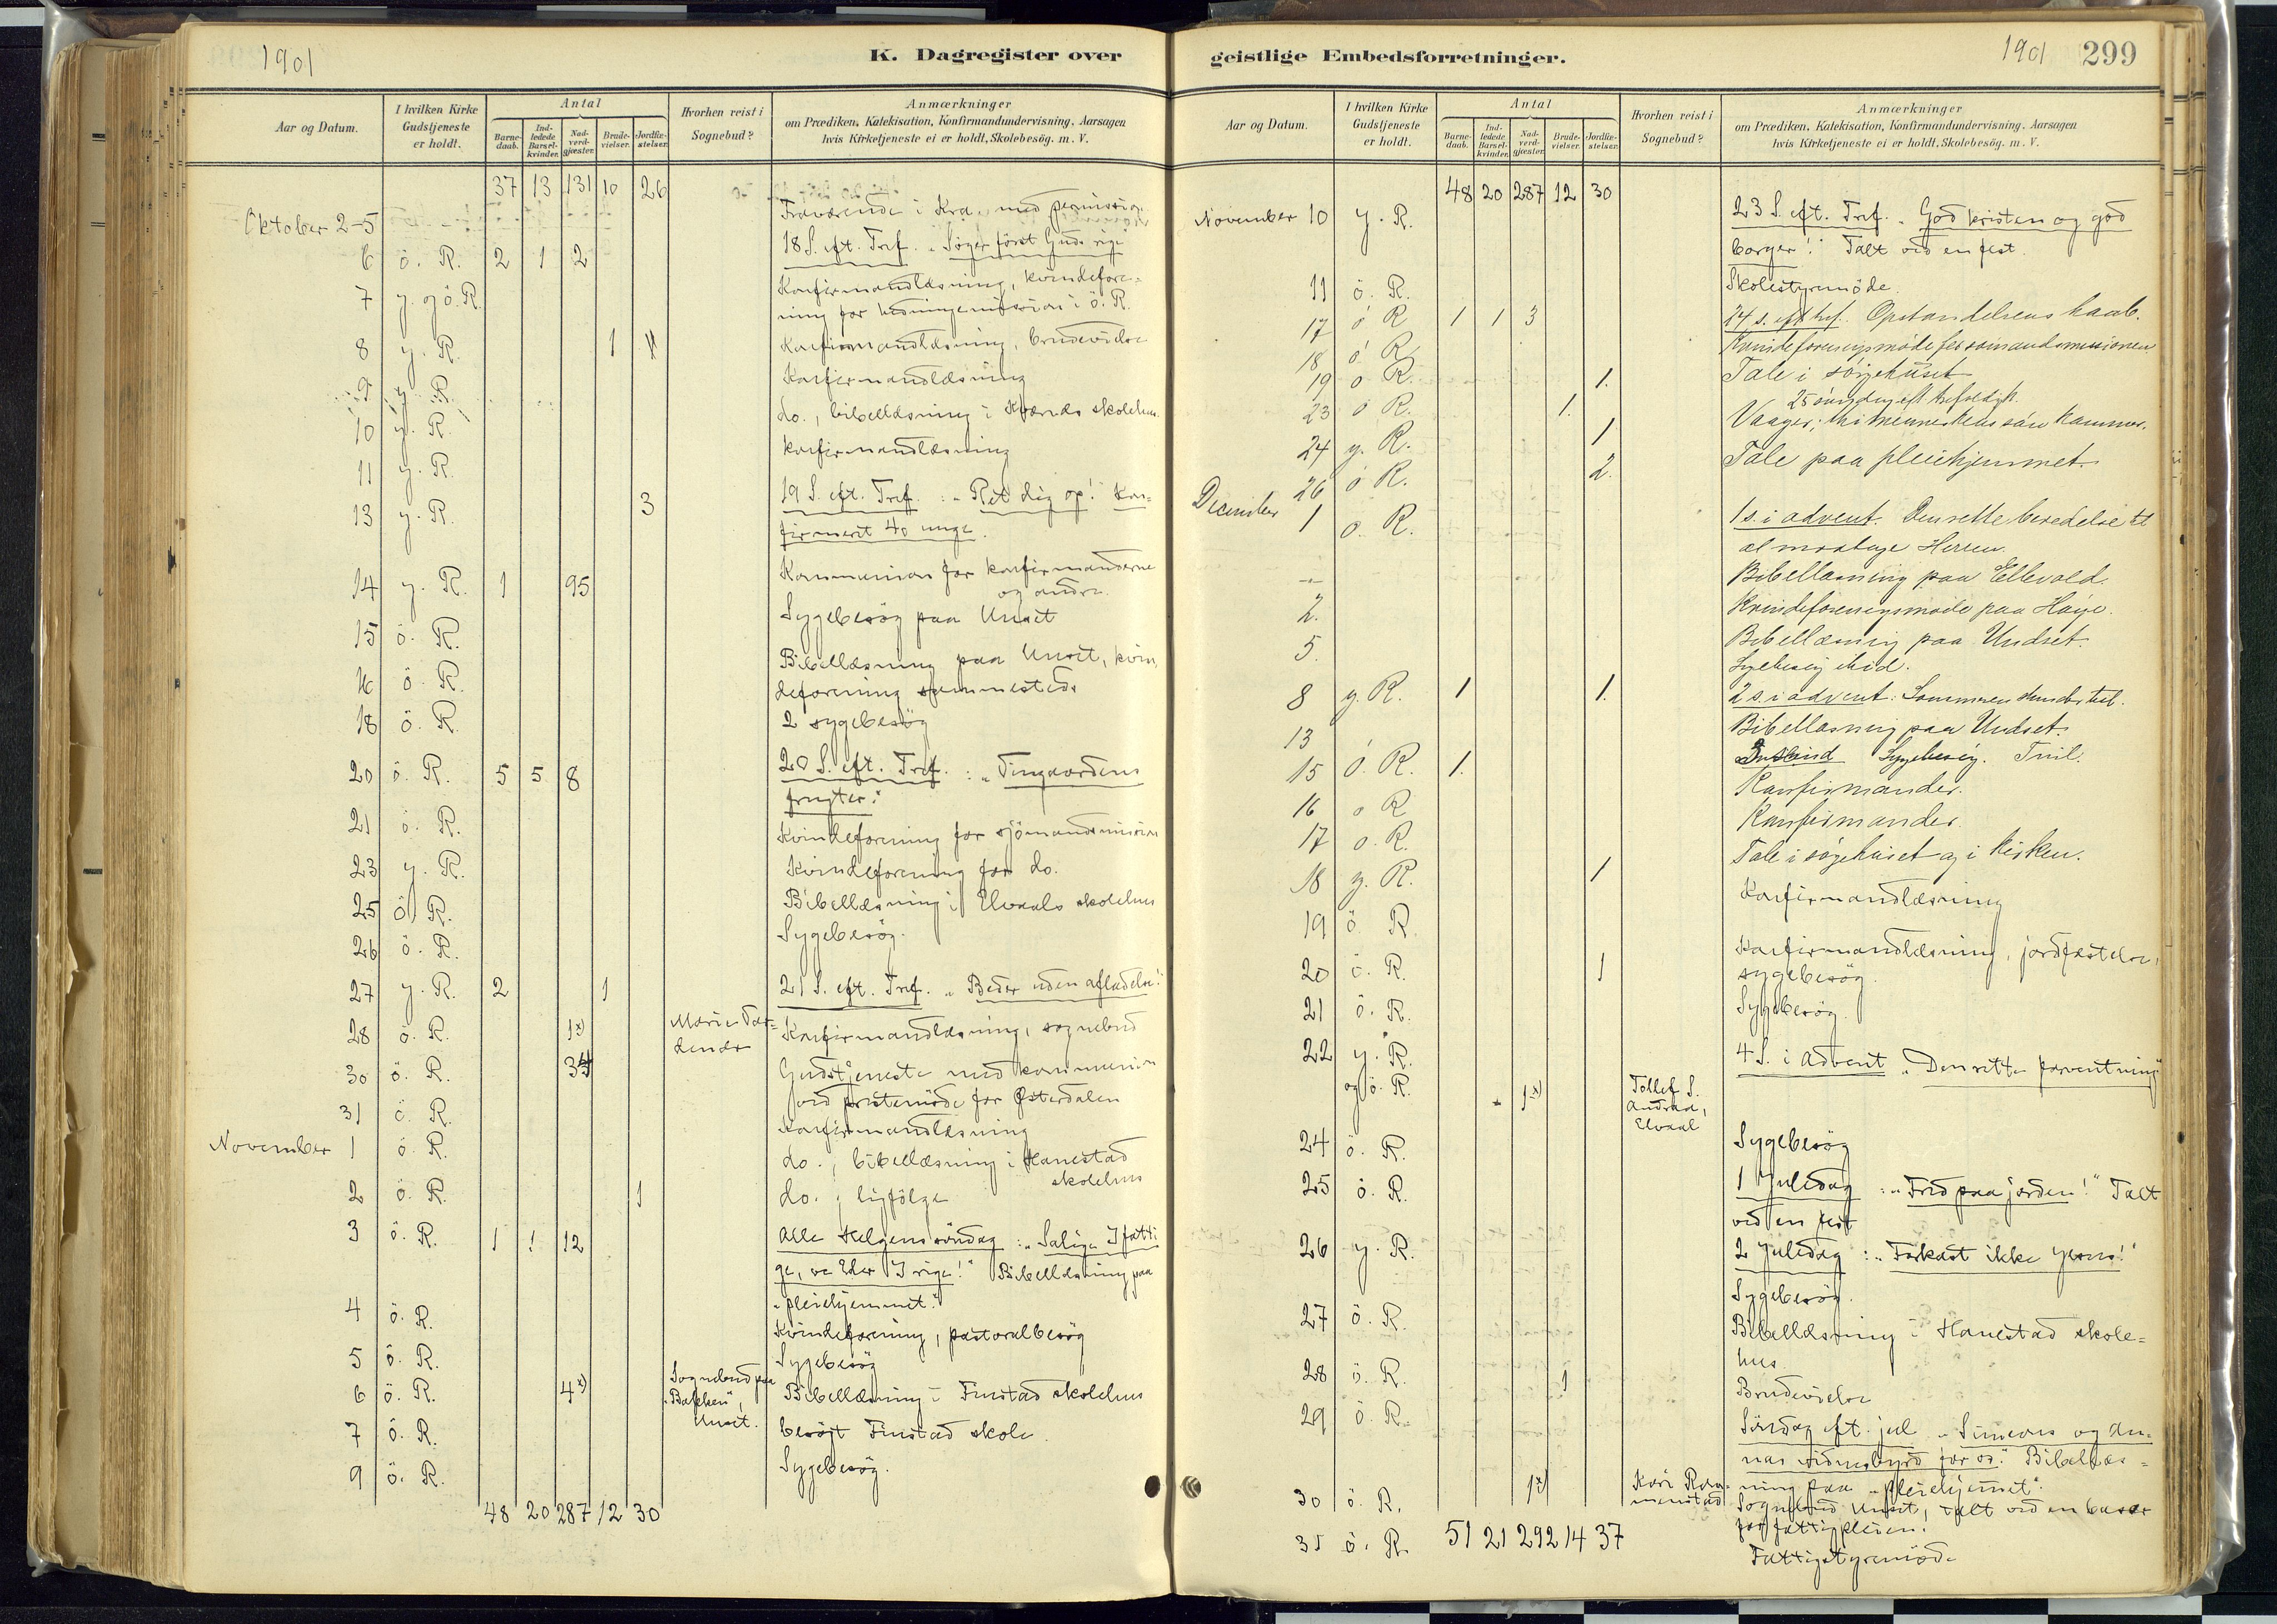 1901
K. Dagregister over
Aar og Datum.
I hvilken Kirke Gudstjeneste er holdt.
Antal
Barne-daab.
Ind-ledede Barsel-kvinder.
Nad-verd-gjæster.
Brude-vielser.
Jordfæ-stelser.
Hvorhen reist i Sognebud?
Anmærkninger
om Prædiken, Katekisation, Konfirmandundervisning, Aarsagen
hvis Kirketjeneste ei er holdt, Skolebesög. m. V.
37 13 131 10 26
Oktober 2-5 Fraværende i Kra. med permission
6 ö. R. 2 1 2 18 S. eft. Tref. "Söger först Guds rige"
7 y. og ö. R. Konfirmandlæsning, kvindefore-
ning for hedningemission i ö. R.
8 y. R. 1 Konfirmandlæsning, brudevielse
9 y. R. Konfirmandlæsning
10 y. R. do., bibellæsning i skolehus
11 y. R. Konfirmandlæsning
13 y. R. 3 19 S. eft. Tref.: "Ret dig op!" Kon-
firmert 40 unge.
14 y. R. 1 95 Kommunion for konfirmanderne
og andre.
15 ö. R. Sygebesög paa Unset
16 ö. R. Bibellæsning paa Unset, kvin-
deforening sammesteds
18 ö. R. 2 sygebesög
20 ö. R. 5 5 8 20 S. eft. Tref.: "Vingaardens
frugter."
21 ö. R. Kvindeforening for sjömandsmission
23 y. R. Kvindeforening for do.
25 ö. R. Bibellæsning i Elvaals skolehus
26 ö. R. Sygebesög.
27 y. R. 2 1 21 S. eft. Tref. "Beder uden afladelse!"
28 ö. R. 1x) Marie Konfirmandlæsning, sognebud
30 ö. R. Gudstjeneste med kommunion
ved prestemöde for Østerdalen
31 ö. R. Konfirmandlæsning
November 1 ö. R. do., bibellæsning i Hanestad
skolehus
2 ö. R. 1 do., ligfölge
3 ö. R. 1 1 12 Alle Helgens söndag: "Salige I fatti-
ge, ve Eder I rige!" Bibellæsning paa
"pleiehjemmet."
4 ö. R. Kvindeforening, pastoralbesög
5 ö. R. Sygebesög
6 ö. R. 4x) Sognebud paa "Bakken", Unset. Bibellæsning i Finstad skolehus
7 ö. R. besögt Finstad skole
9 ö. R. Sygebesög.
48 20 287 12 30
geistlige Embedsforretninger.
1901 299
Aar og Datum.
I hvilken Kirke Gudstjeneste er holdt.
Antal
Barne-daab.
Ind-ledede Barsel-kvinder.
Nad-verd-gjæster.
Brude-vielser.
Jordfæ-stelser.
Hvorhen reist i Sognebud?
Anmærkninger
om Prædiken, Katekisation, Konfirmandundervisning, Aarsagen
hvis Kirketjeneste ei er holdt, Skolebesög. m. V.
48 20 287 12 30
November 10 y. R. 23 S. eft. Tref. "God kristen og god
borger!" Talt ved en fest.
11 ö. R. Skolestyremöde.
17 ö R 1 1 3 24 s. eft tref. Opstandelsens haab.
18 ö R. Kvindeforeningsmöde for sömandsmissionen
19 ö R. 1. Tale i sörgehuset
23 ö R. 1. 25 söndag eft trefoldigh.
24 y. R. 1 Vaager; thi menneskens sön kommer.
26 ö R. 2. Tale paa pleiehjemmet.
December 1 ö. R. 1 s. i advent. Den rette beredelse til
at modtage Herren.
Bibellæsning paa Ellevold.
2. Kvindeforeningsmöde paa Höye.
5. Bibellæsning paa Undset.
Sygebesög ibid.
8 y. R. 1 1. 2 s. i advent:
13 Bibellæsning paa Undset.
15 ö. R. 1. Sygebesög.
16 ö R Konfirmander.
17 ö. R. Konfirmander.
18 y. R. 1 Tale i sörgehuset og i kirken.
19 ö. R. Konfirmandlæsning
20 ö. R. 1 Konfirmandlæsning, jordfæstelse,
sygebesög.
21 ö. R. Sygebesög.
22 y. R. 4 S. i Advent "Den rette forventning"
og ö. R. 1x) Tollef S. Elvaal
24 ö. R. Sygebesög
25 ö. R. 1 Juledag: "Fred paa jorden!" Talt
ved en fest
26 y. R. 2 Juledag: "Forkast ikke Jesus!"
Sygebesög.
27 ö. R. Bibellæsning i Hanestad skole-
hus.
28 ö. R. 1 Brudevielse
29 ö. R. Söndag eft. jul "Simeons og An-
nas vidnesbyrd for os." Bibellæs-
ning paa "pleiehjemmet".
30 ö. R. 1x) Kari Sognebud Unset, talt ved en basar
for fattigpleien.
31 ö. R. 51 21 292 14 37 Fattigstyremöde